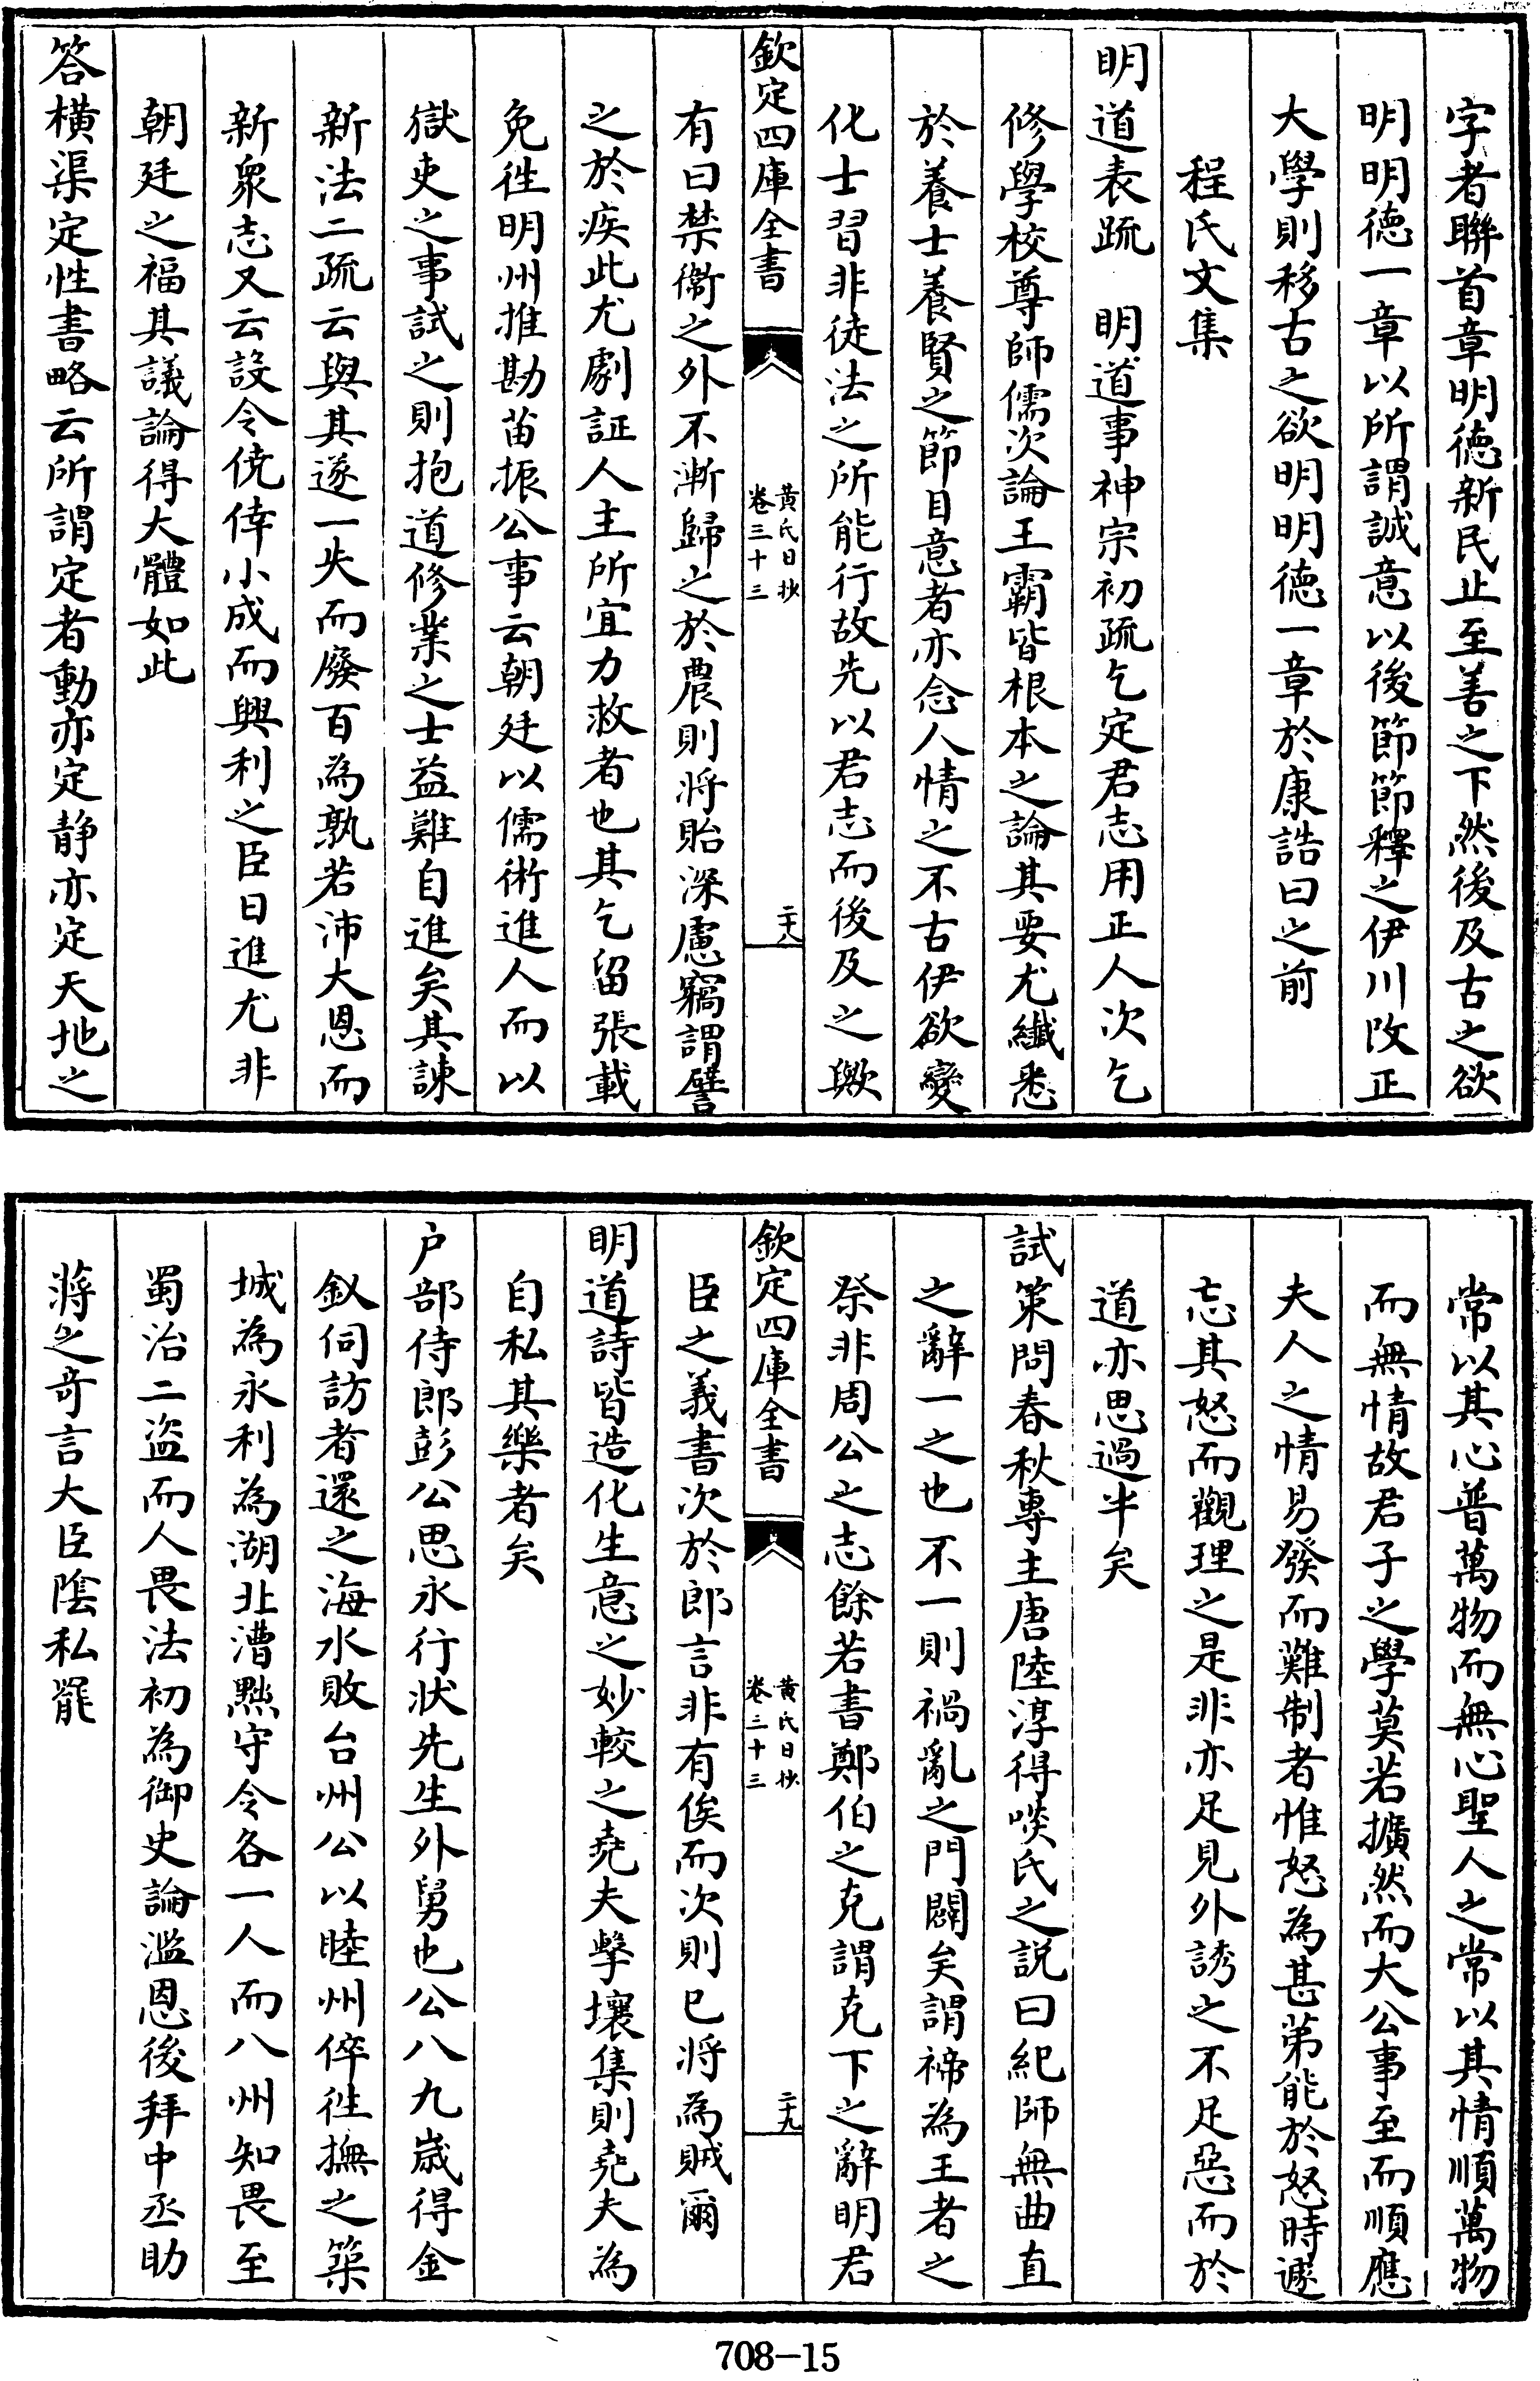 字者聯首章明徳新民止至善之下然後及古之欲
明明徳一章以所謂誠意以後節節釋之伊川改正
大學則移古之欲明明徳一章於康誥曰之前
程氏文集
明道表疏　明道事神宗初疏乞定君志用正人次乞
修學校尊師儒次論王霸皆根本之論其要尤纎悉
於養士養賢之節目意者亦念人情之不古伊欲變
化士習非徒法之所能行故先以君志而後及之歟
欽定四庫全書
黄氏日抄
卷三十三
二十八
有曰禁衞之外不漸歸之於農則將貽深慮竊謂譬
之於疾此尤劇証人主所宜力救者也其乞留張載
免徃明州推勘苗振公事云朝廷以儒術進人而以
獄吏之事試之則抱道修業之士益難自進矣其諫
新法二疏云與其遂一失而廢百為孰若沛大恩而
新衆志又云設令僥倖小成而興利之臣日進尤非
朝廷之福其議論得大體如此
答横渠定性書略云所謂定者動亦定静亦定天地之
常以其心普萬物而無心聖人之常以其情順萬物
而無情故君子之學莫若擴然而大公事至而順應
夫人之情易發而難制者惟怒為甚第能於怒時遽
忘其怒而觀理之是非亦足見外誘之不足惡而於
道亦思過半矣
試策問春秋專主唐陸淳得啖氏之説曰紀師無曲直
之辭一之也不一則禍亂之門闢矣謂禘為王者之
祭非周公之志餘若書鄭伯之克謂克下之辭明君
欽定四庫全書
黄氏日抄
卷三十三
二十九
臣之義書次於郎言非有俟而次則已將為賊爾
明道詩皆造化生意之妙較之堯夫擊壤集則堯夫為
自私其樂者矣
户部侍郎彭公思永行狀先生外舅也公八九歳得金
釵伺訪者還之海水敗台州公以睦州倅徃撫之築
城為永利為湖北漕黜守令各一人而八州知畏至
蜀治二盜而人畏法初為御史論濫恩後拜中丞助
蔣之奇言大臣隂私罷
708-15